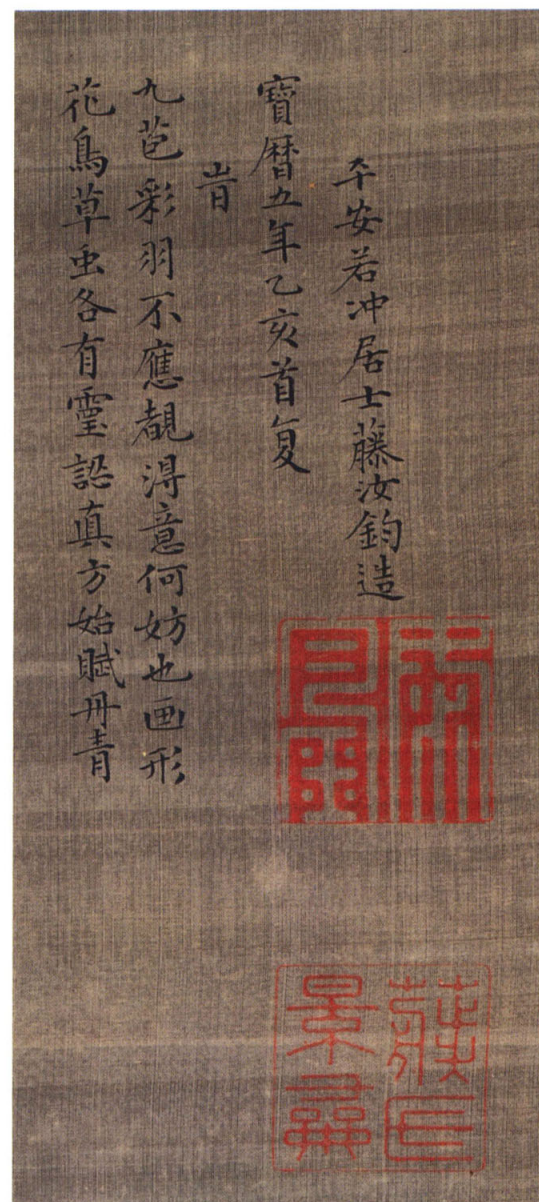 平安若冲居士藤汝鈞造
寶曆五年乙亥首夏
旹
九苞彩羽不應覩淂意何妨也画形
花鳥草虫各有霊認真方始賦丹青